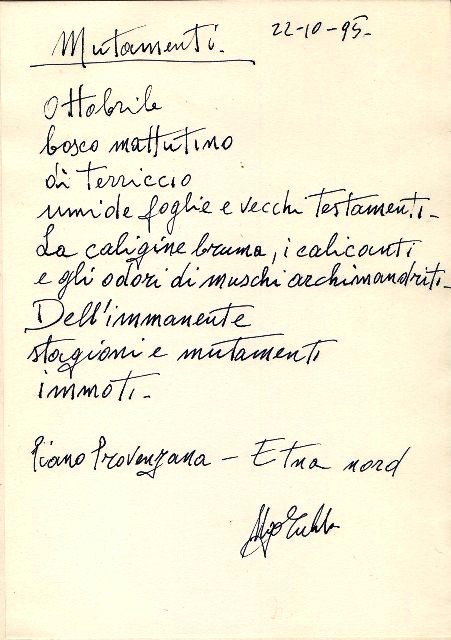 Mutamenti.
22-10-95-
Ottobrile
bosco mattutino
di terriccio
umide foglie e vecchi testamenti-
La caligine bruma, i calicanti
e gli odori di muschi archimandriti-
Dell'immanente
stagioni e mutamenti
immoti-
Piano Provenzana - Etna nord